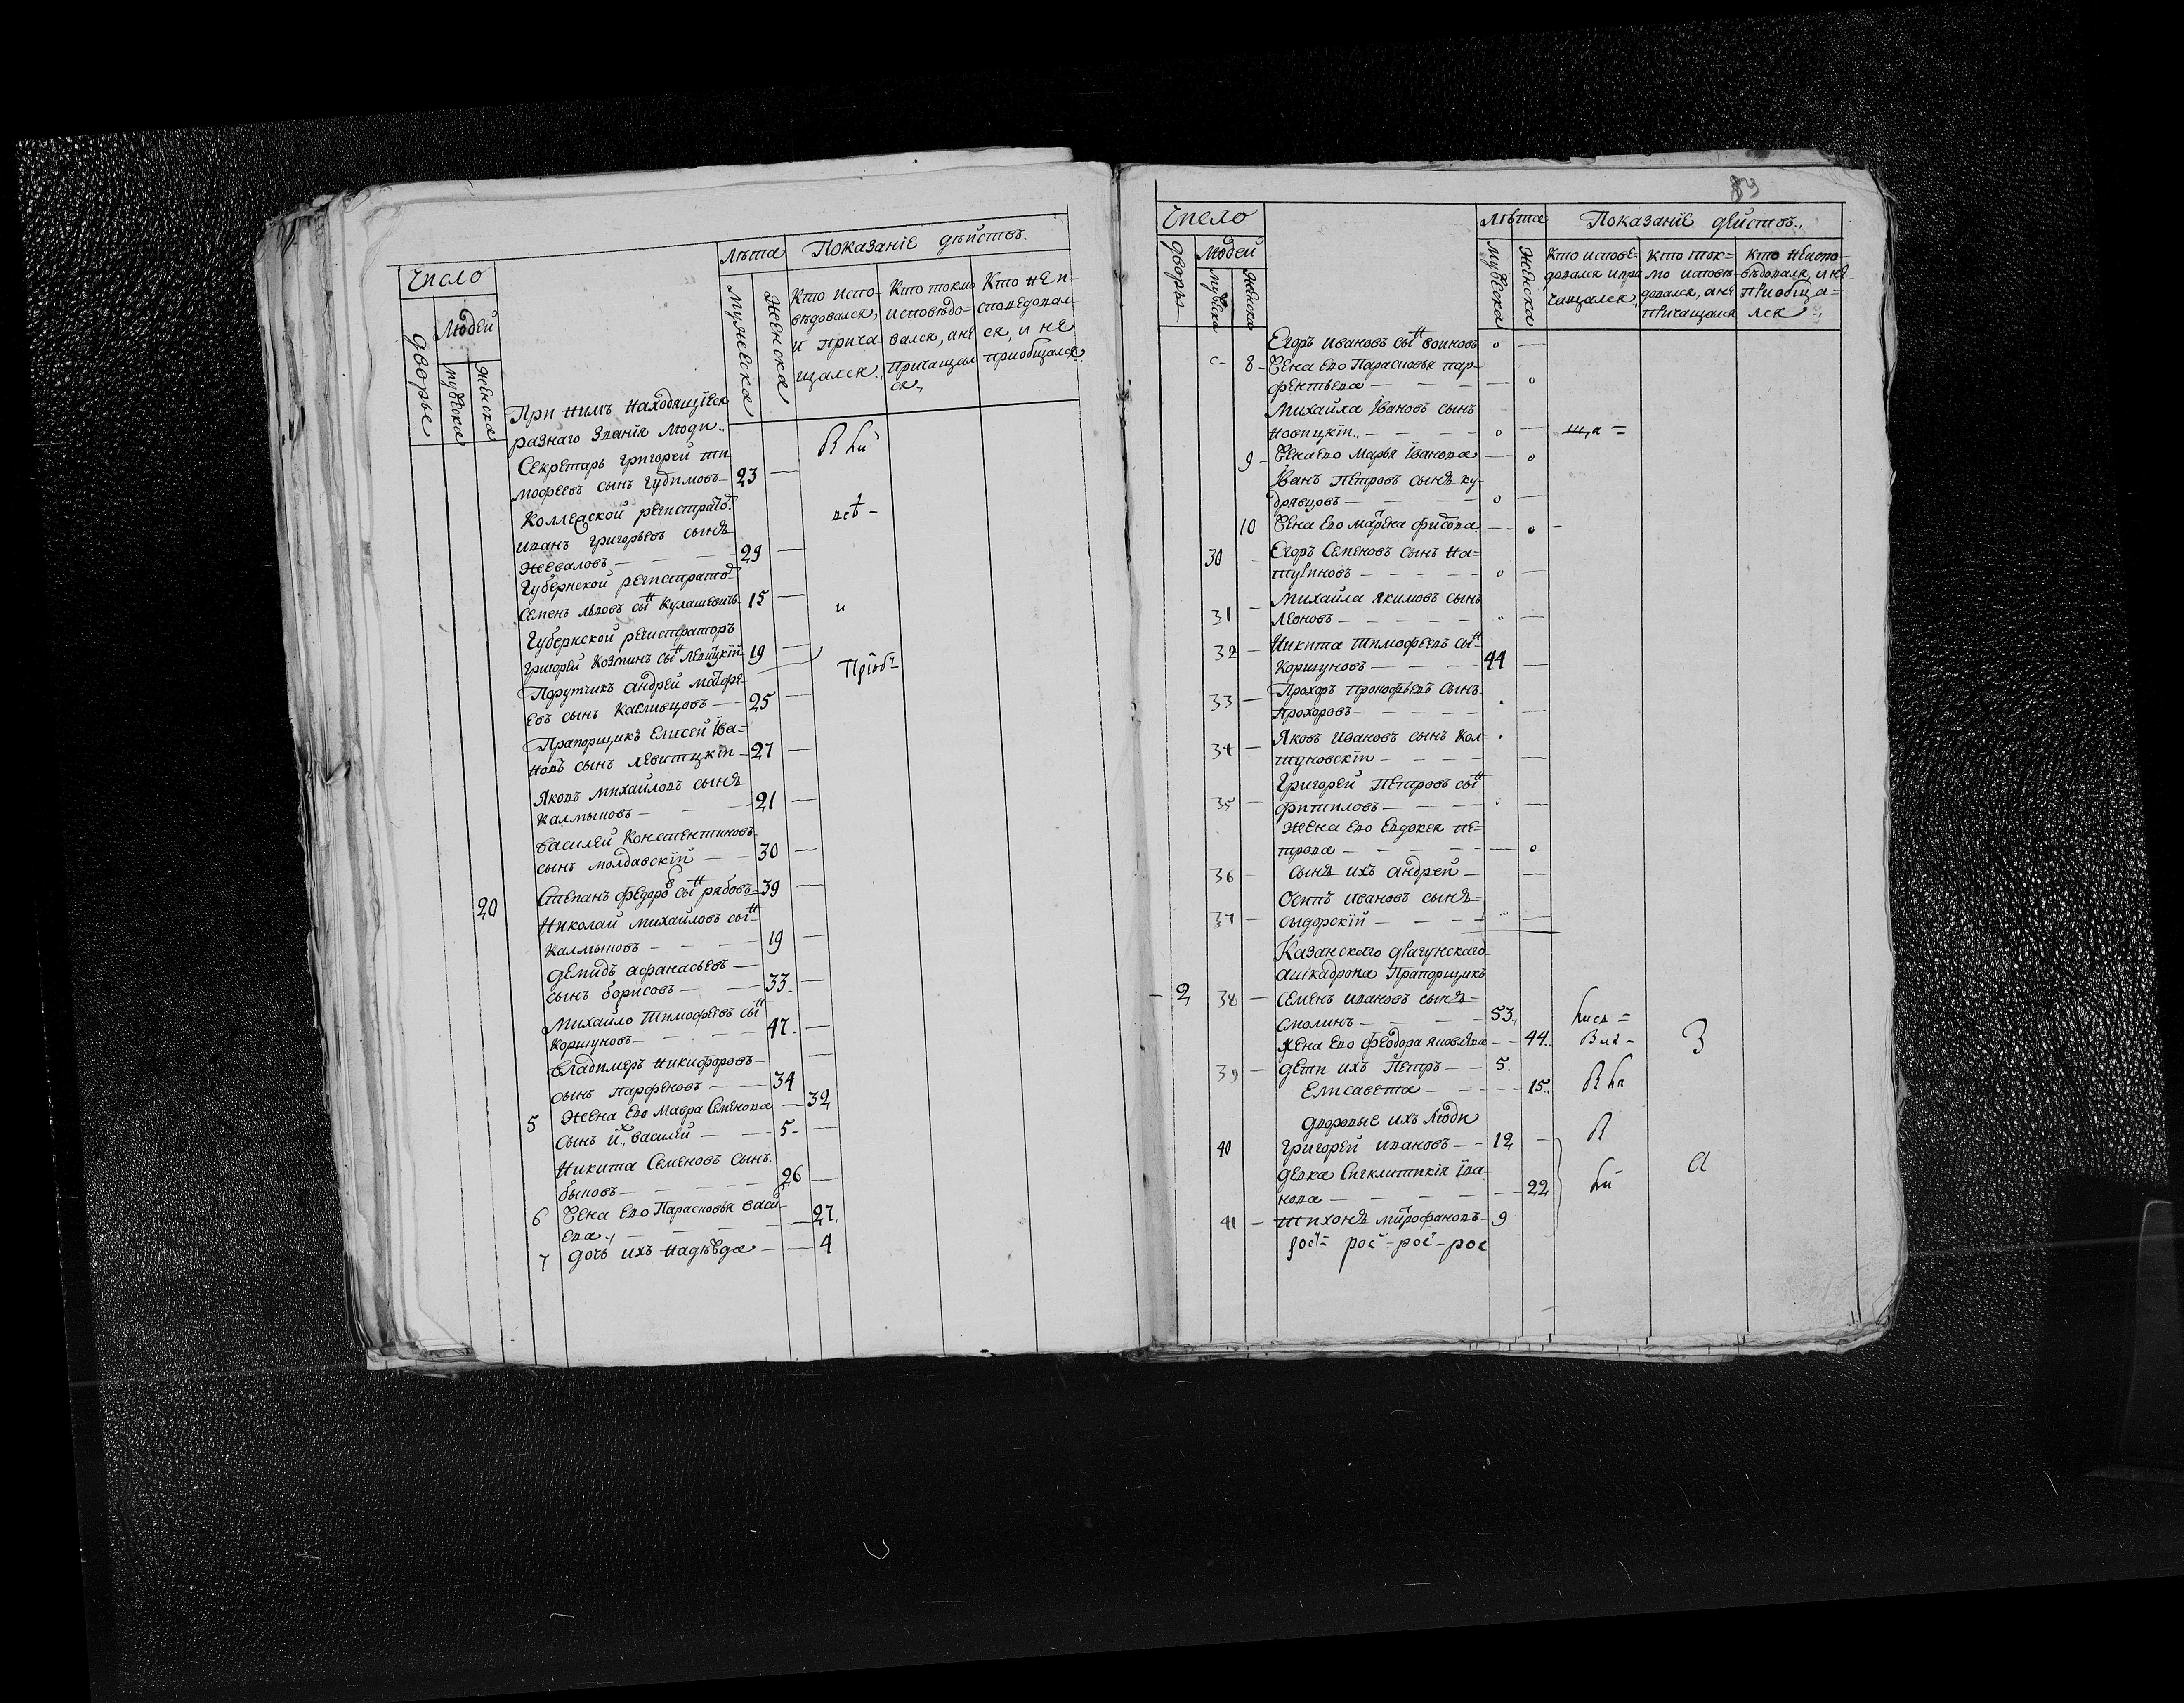 Число
Лѣта
Показанiе дѣйствъ.
дворье
Людей
мужеска
женска
мужеска
женска
Кто испо-
вѣдовался,
и прича-
щался.,
Кто токмо
исповѣдо-
вался, а не
причащал
ся.,
Кто не и-
споведовал-
ся, и не
приобщался.
При нимъ находящiеся
разнаго званiя люди..
Секретарь григорей ти
мофеевъ сынъ гудимовъ - 23 -
Коллежской регистратор
иванъ григорьевъ сынъ
жеваловъ - 29 -
Губернской регистратор
Семенъ львовъ сынъ кулашевичь 15 -
Губернской регистраторъ
григорей козминъ сынъ левицкiй 19 -
Порутчикъ андрей матфе
евъ сынъ - 25 -
Прапорщикъ Елисей Iва=
новъ сынъ левитцкiи - 27 -
Яковъ михайловъ сынъ
калмыковъ - 21 -
василей констентиновъ
сынъ молдавскiй - 30 -
20 Степанъ федоровъ сынъ рябовъ 39 -
Николай михайловъ сынъ
калмыковъ - 19 -
демидъ афанасьевъ -
сынъ борисовъ - 33 -
Михайло Тимофеевъ сынъ
коршуновъ - 47 -
Владимеръ никифоровъ -
сынъ парфеновъ - 34
5 Жена ево мавра Семенова - 32
Сынъ их., василей - 5 -
Никита Семеновъ сынъ
быковъ - 26 -
6 жена ево Парасковья васи
ева., - 27.
7 дочь ихъ надежда - 4
89
Число
Лѣта
Показанiе действъ.,
дворья
Людей
мужеска
женска
мужеска
женска
Кто испове-
довался и при
чащался.,
Кто ток=
мо исповѣ-
довался, а не
причащался
Кто неиспо-
вѣдовался, и не
приобща=
лся.,
Егоръ ивановъ сынъ воиновъ о -
8 - жена ево Парасковья пар-
фентьева - о
Михайла Iвановъ сынъ
новицкiи., - о -
9 - жена ево Марья Iванова - о
Iванъ Петровъ сынъ ку-
дрявцовъ - о -
10 жена ево марена - о -
30 Егоръ Семеновъ сынъ на=
тугиновъ - о -
31 - Михайла якимовъ сынъ
леоновъ -
32 - Никита тимофеевъ сынъ
коршуновъ - 44 -
33 - Прохоръ прокофьевъ сынъ
прохоровъ -
34 - Яковъ ивановъ сынъ кол=
туновскiи -
35 - Григорей Петровъ сынъ
фитиловъ -
жена ево Евдокея пе=
трова - о
36 - сынъ ихъ андрей -
37 - Осипъ ивановъ сынъ=
сыдорскiй -
Казанского драгунскаго
Прапорщикъ
- 2 38 - Семенъ ивановъ сынъ=
Смолинъ - 53.,
жена ево феодора яковлева - 44..
39 - дети ихъ Петръ - 5.
Елисавета - 15..
дворовые ихъ люди
40 григорей ивановъ - 12 -
девка Сиклитикiя Iва
нова - 22
41 - тихонъ митрофановъ - 9